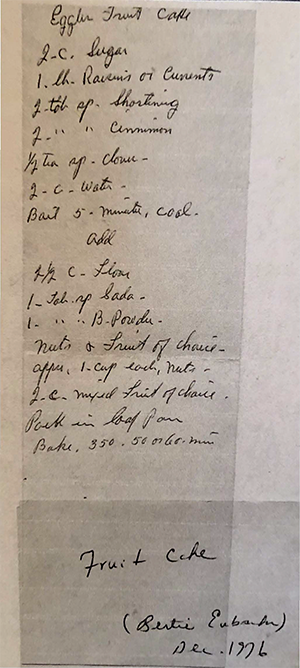 Eggless Fruit Cake
2-C. Sugar
1. lb. Raisins or Currents
2-tab sp. Shortining
2- " " Cinnimon
1/2 tea sp- Cloves-
2-C-Water-
Boil 5-minutes, cool.
add
2 1/2 C-Flour
1-Tab-sp Soda-
1- " " B-Powder-
nuts & Fruit of choice-
appx, 1-cup each, nuts-
2-C-mixed Fruit of choice.
Pack in Loaf Pan
Bake, 350. 50 or 60-min
Fruit Cake
(Bertie Eubanks)
Dec. 1976